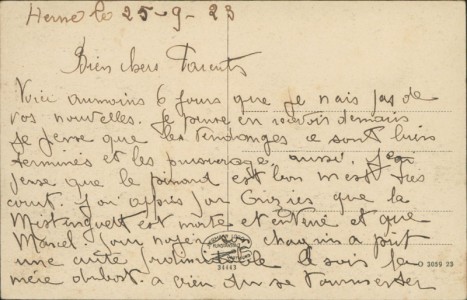 Herne le 25-9-23
Bien chers Parents
Voici aumoins 6 jours que je nais pas de
vos nouvelles. Je pense en recevoir demain
Je pense que les Vendanges se sont bien
terminés et les pressurage aussi.
pense que le pinard est bon m est très
court. J'ai appris par que la
Mistinguett est morte et enterré et que
Marcel pour noyer son chagrin a prit
une cuite le soir la
mère a bien du se tourmenter
34143
O 3059 23